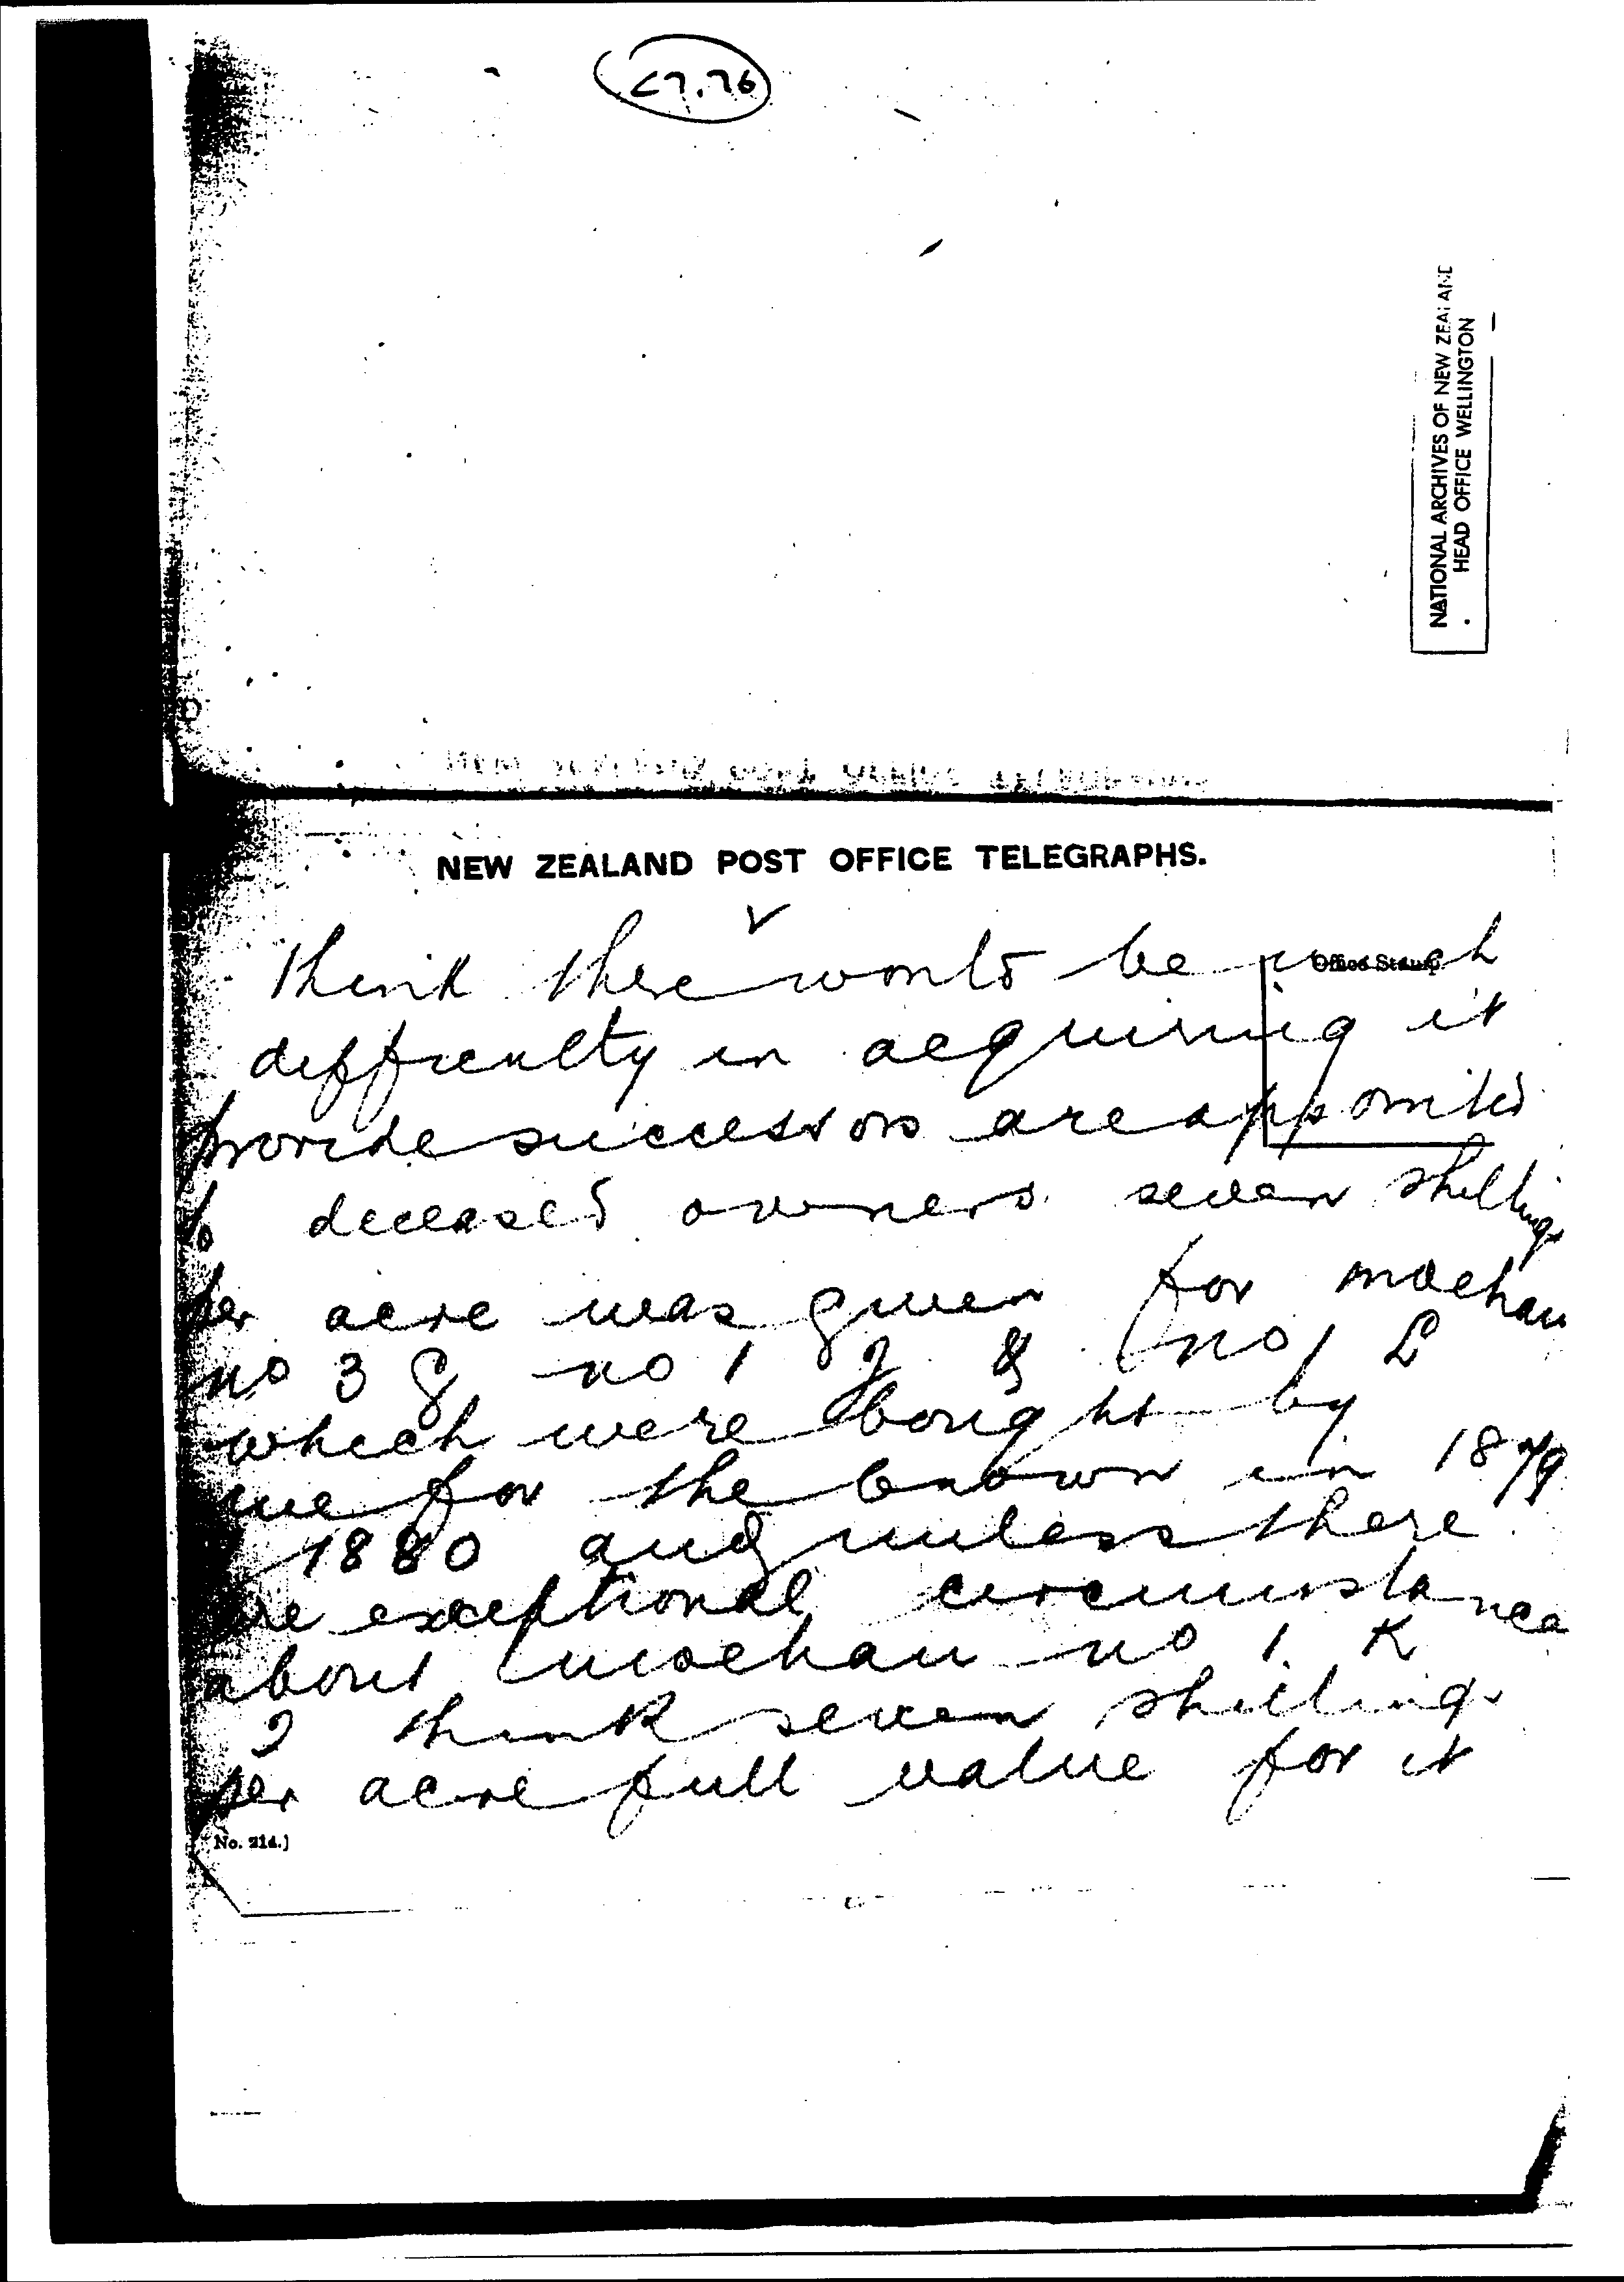 C7.76
NATIONAL ARCHIVES OF NEW ZEALAND
HEAD OFFICE WELLINGTON
NEW ZEALAND POST OFFICE TELEGRAPHS.
Office Stamp.
think there would be much
difficulty in acquiring it
provide successors are appointed
to deceased owners seven shillings
per acre was given for moehau
no 3 no 1 & no 1
which were bought by
me for the crown in 1879
1880 and unless there
are exceptional circumstances
about moehau no 1 K
I think seven shillings
per acre full value for it
No. 214.]